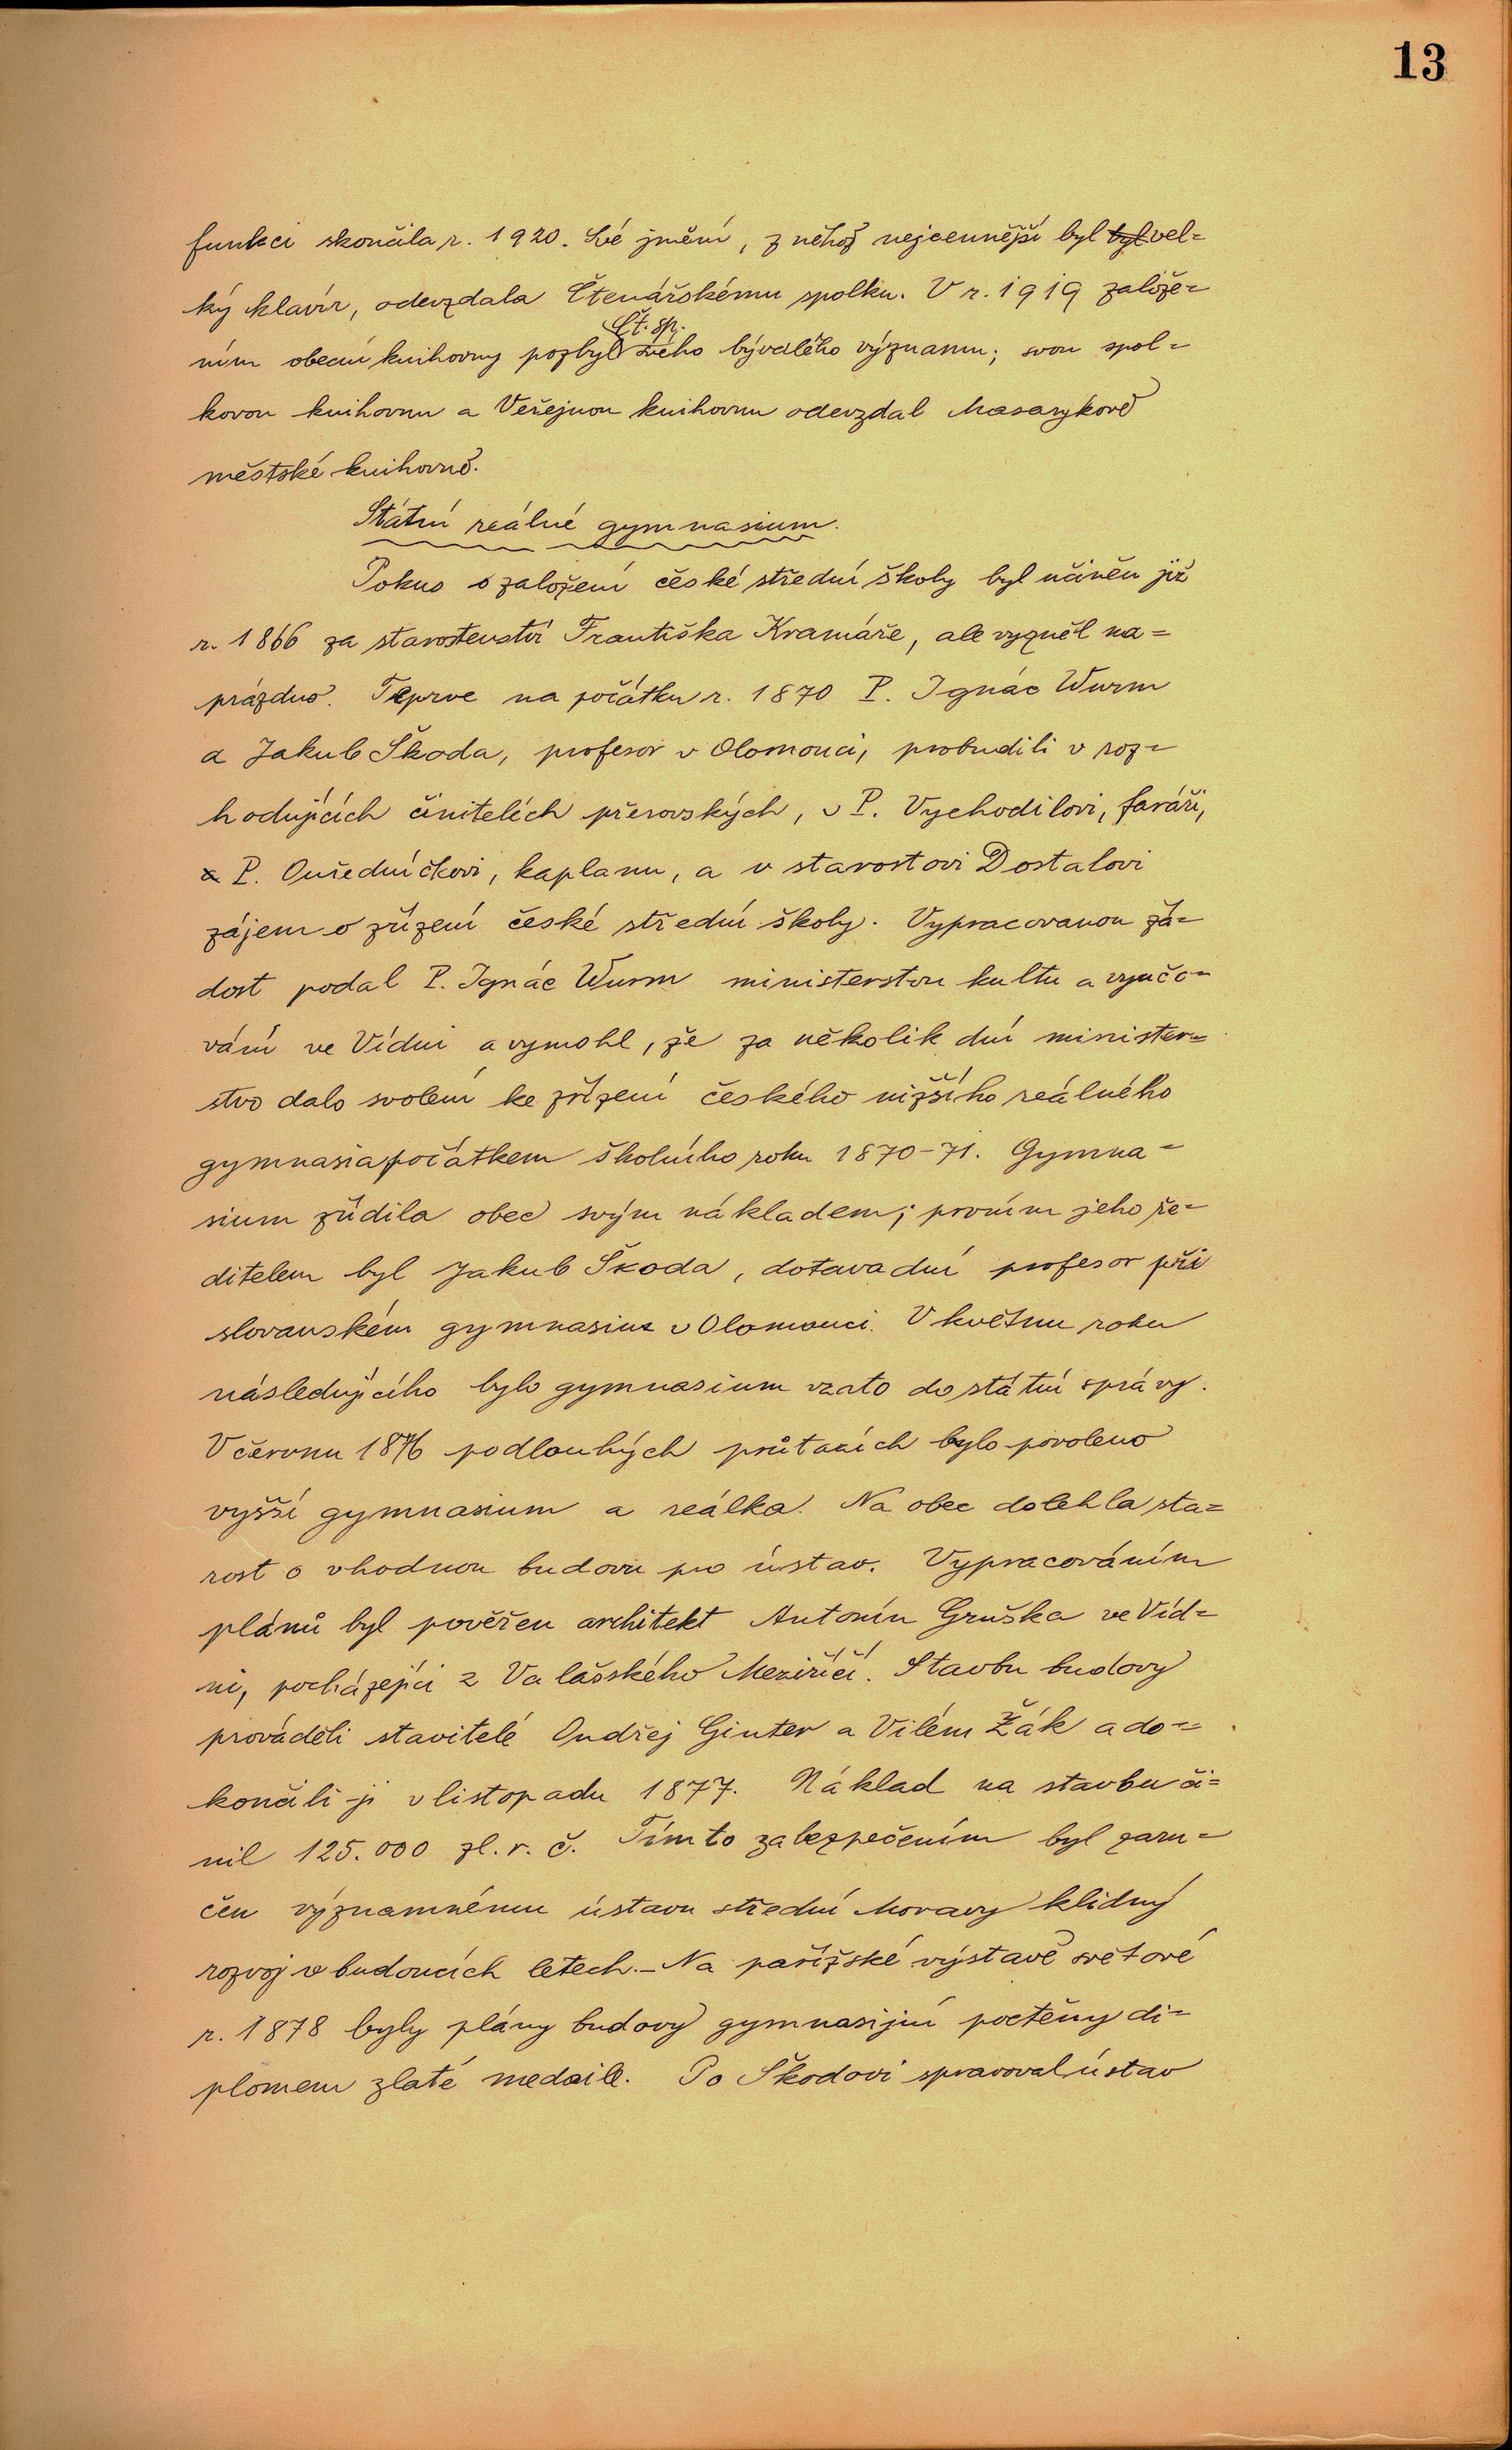 13
funkci skončila r. 1920. Své jmění, z něhož nejcennější byl byl vel=
ký klavír, odevzdala Čtenářskému spolku. V r. 1919 založe=
Čt. sp.
ním obecní knihovny pozbyl svého bývalého významu; svou spol=
kovou knihovnu a Veřejnou knihovnu odevzdal Masarykově
městské knihovně.
Státní reálné gymnasium.
Pokus o založení české střední školy byl učiněn již
r. 1866 za starostenství Františka Kramáře, ale vyzněl na=
prázdno. Teprve na počátku r. 1870 P. Ignác Wurm
a Jakub Škoda, profesor v Olomouci, probudili v roz=
hodujících činitelích přerovských, v P. Vychodilovi, faráři,
a P. Ouředníčkovi, kaplanu, a v starostovi Dostalovi
zájem o zřízení české střední školy. Vypracovanou žá=
dost podal P. Ignác Wurm ministerstvu kultu a vyučo=
vání ve Vídni a vymohl, že za několik dní minister=
stvo dalo svolení ke zřízení českého nižšího reálného
gymnasia počátkem školního roku 1870-71. Gymna=
sium zřídila obec svým nákladem; prvním jeho ře=
ditelem byl Jakub Škoda, dotavadní profesor při
slovanském gymnasiu v Olomouci. V květnu roku
následujícího bylo gymnasium vzato do státní správy.
V červnu 1876 po dlouhých průtazích bylo povoleno
vyšší gymnasium a reálka. Na obec dolehla sta=
rost o vhodnou budovu pro ústav. Vypracováním
plánů byl pověřen architekt Antonín Gruška ve Víd=
ni, pocházející z Valašského Meziříčí. Stavbu budovy
prováděli stavitelé Ondřej Ginter a Vilém Žák a do=
končili ji v listopadu 1877. Náklad na stavbu či=
nil 125.000 zl. r. č. Tímto zabezpečením byl zaru=
čen významnému ústavu střední Moravy klidný
rozvoj v budoucích letech. – Na pařížské výstavě světové
r. 1878 byly plány budovy gymnasijní poctěny di=
plomem zlaté medaile. Po Škodovi spravoval ústav